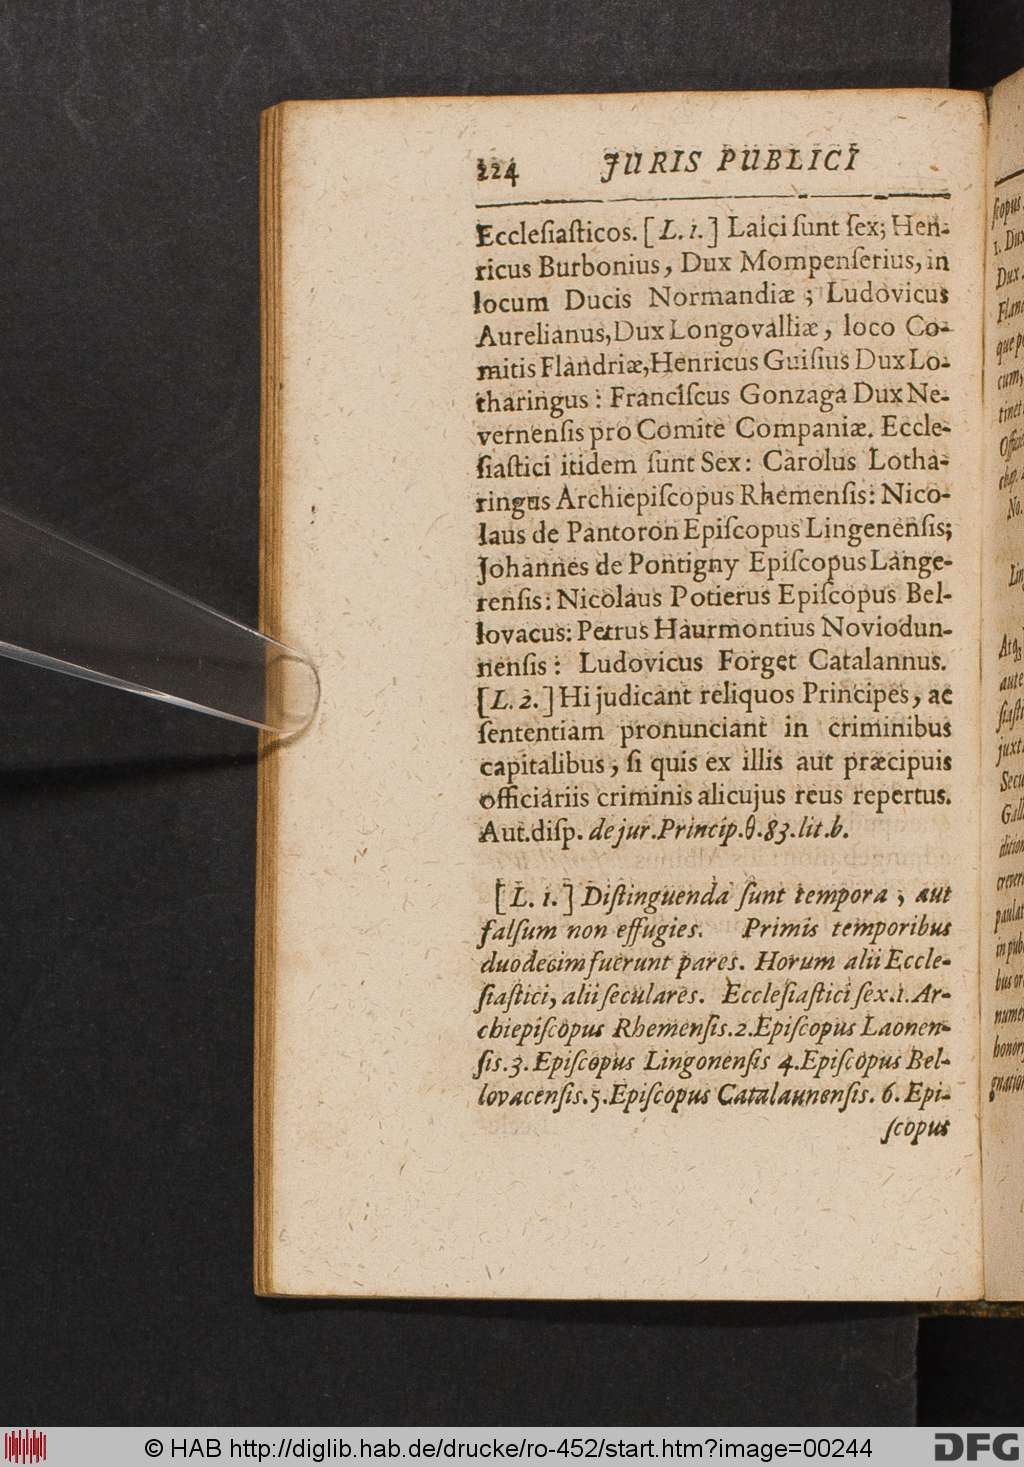 224 JURIS PUBLICI
Eccleſiaſticos. [L. 1.] Laici ſunt ſex; Hen-
ricus Burbonius, Dux Mompenſerius, in
locum Ducis Normandiæ ; Ludovicus
Aurelianus, Dux Longovalliæ, loco Co-
mitis Flandriæ, Henricus Guiſius Dux Lo-
tharingus : Franciſcus Gonzaga Dux Ne-
vernenſis pro Comite Companiæ. Eccle-
ſiaſtici itidem ſunt Sex: Carolus Lotha-
ringus Archiepiſcopus Rhemenſis: Nico-
laus de Pantoron Epiſcopus Lingenenſis;
Johannes de Pontigny Epiſcopus Lange-
renſis: Nicolaus Potierus Epiſcopus Bel-
lovacus: Petrus Haurmontius Noviodun-
nenſis : Ludovicus Forget Catalannus.
[L. 2.] Hi judicant reliquos Principes, ac
ſententiam pronunciant in criminibus
capitalibus, ſi quis ex illis aut præcipuis
officiariis criminis alicujus reus repertus.
Aut. diſp. de jur. Princip. θ. 83. lit. b.
[L. 1.] Diſtinguenda ſunt tempora ; aut
falſum non effugies. Primis temporibus
duodecim fuerunt pares. Horum alii Eccle-
ſiaſtici, alii ſeculares. Eccleſiaſtici ſex. 1. Ar-
chiepiſcopus Rhemenſis. 2. Epiſcopus Laonen-
ſis. 3. Epiſcopus Lingonenſis 4. Epiſcopus Bel-
lovacenſis. 5. Epiſcopus Catalaunenſis. 6. Epi-
ſcopus
© HAB http://diglib.hab.de/drucke/ro-452/start.htm?image=00244
DFG